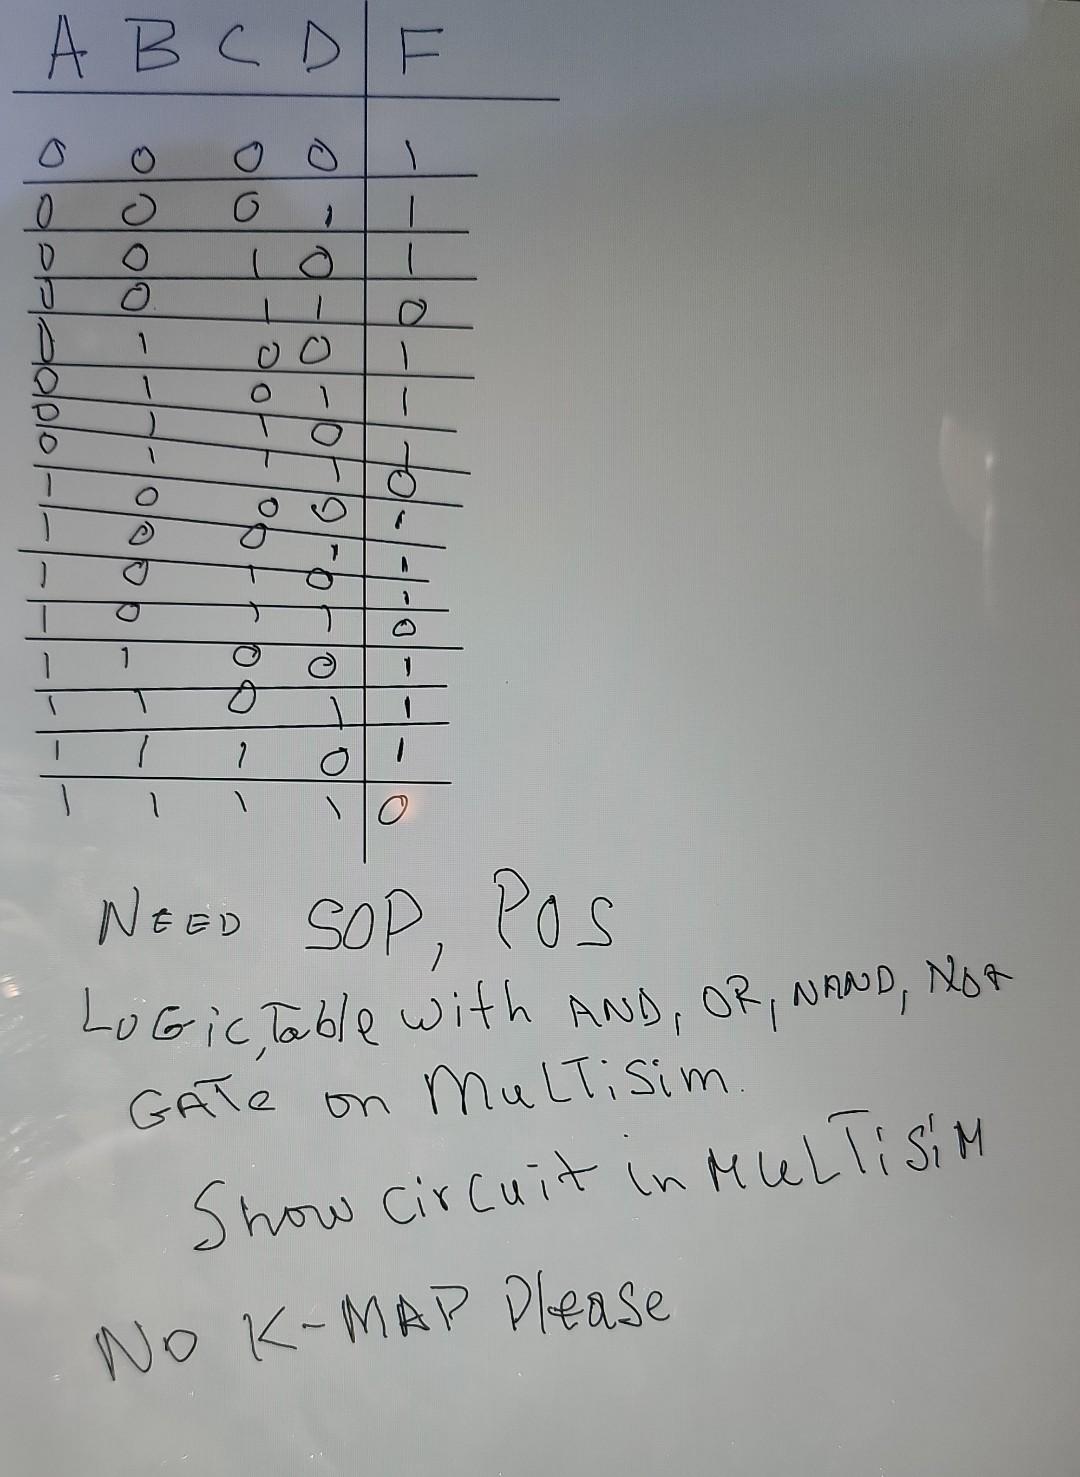 A B C D F
0 0 0 0 1
0 0 0 1 1
0 0 1 0 1
0 0 1 1 0
0 1 0 0 1
0 1 0 1 1
0 1 1 0 1
0 1 1 1 0
1 0 0 0 1
1 0 0 1 1
1 0 1 0 1
1 0 1 1 0
1 1 0 0 1
1 1 0 1 1
1 1 1 0 1
1 1 1 1 0
NEED SOP, POS
LOGic, Table with AND, OR, NAND, NOR
GATe on MuLTiSim.
Show circuit in MuLTiSiM
NO K-MAP Please